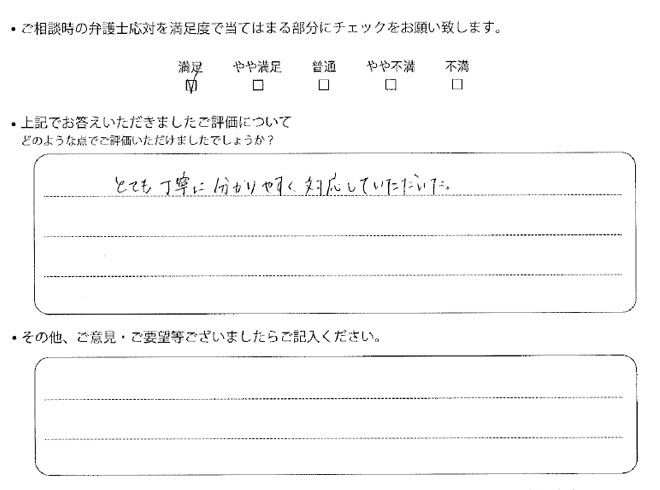 ・ご相談時の弁護士応対を満足度で当てはまる部分にチェックをお願い致します。
満足 やや満足 普通 やや不満 不満
☑ □ □ □ □
・上記でお答えいただきましたご評価について
どのような点でご評価いただけましたでしょうか?
とても丁寧に分かりやすく対応していただいた。
・その他、ご意見・ご要望等ございましたらご記入ください。